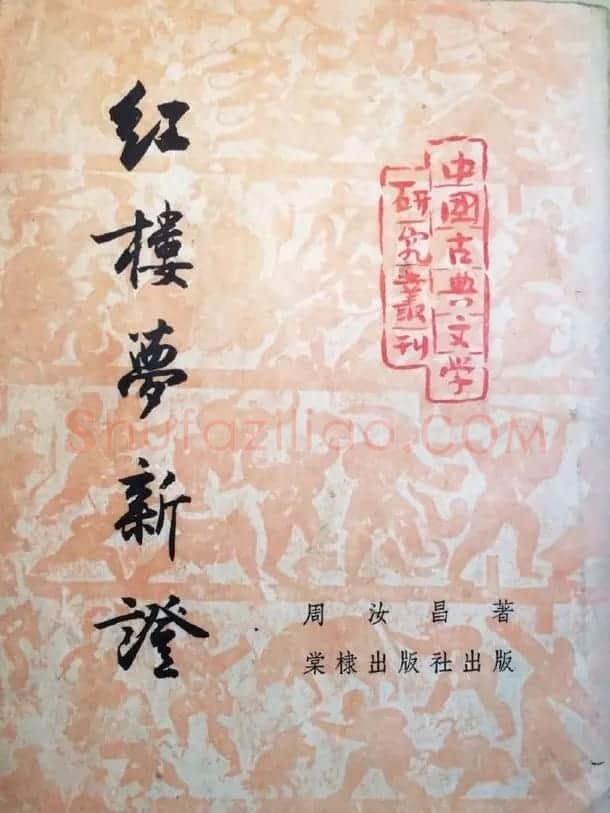 红樓夢新證
中國古典文学
研究叢刊
周汝昌著
棠棣出版社出版
Shufaziliao.COM